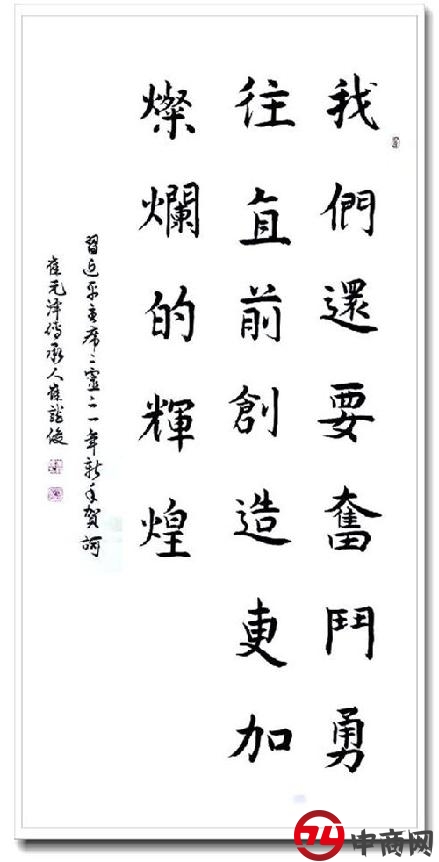 我們還要奮鬥勇
往直前創造更加
燦爛的輝煌
習近平主席二零二一年新年賀詞
崔元澤傳承人崔
中商网